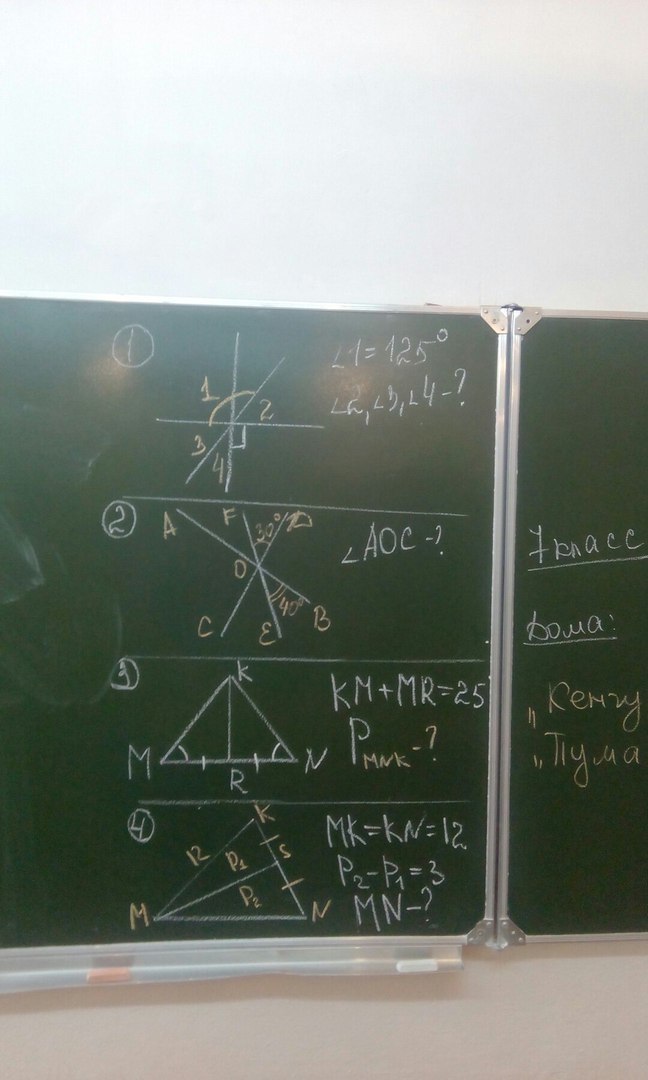 1
∠1=125°
∠2,∠3,∠4-?
1
2
3
4
2
A
F
30°
D
∠AOC-?
O
40°
C
E
B
3
K
KM+MR=25
P MNK-?
M
N
R
4
K
MK=KN=12
12
P1
S
P2-P1=3
P2
M
N
MN-?
7 класс
Дома:
„Кенгу
„Пума